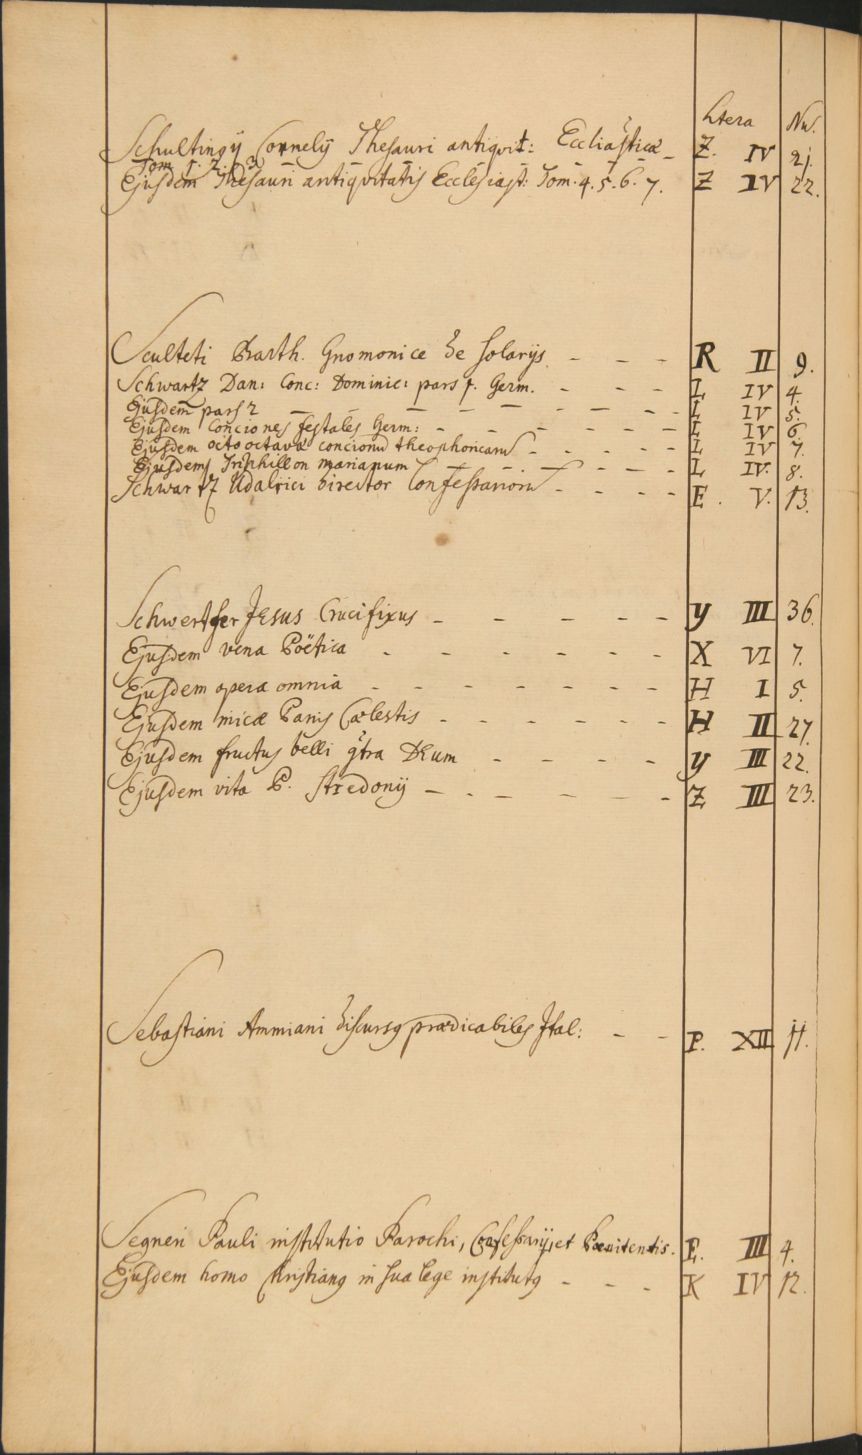 Litera Nu.
Schultingÿ Cornelÿ Thesauri antiqvit: Eccliasticæ Z. IV 21.
Tom 1. 2. 3.
Ejusdem Thesauri antiqvitatis Ecclesiast: Tom. 4. 5. 6. 7. Z IV 22.
Sculteti Barth. Gnomonice de solarÿs. - - - R II 9.
Schwartz Dan: Conc: Dominic: pars 1. Germ. - - - L IV 4.
Ejusdem pars 2 - - - - - - - - L IV 5.
Ejusdem Conciones festales Germ: - - - - - - L IV 6
Ejusdem octo octavæ concionū theophoricarū - - - - L IV 7.
Ejusdem Triphillon marianum - - - - - - L IV. 8.
Schwartz Udalrici director Confessariorū - - - - E. V. 13.
Schwertfer JESUS Crucifixus - - - - - y III 36.
Ejusdem vena Poëtica - - - - - - X VI 7.
Ejusdem opera omnia - - - - - - - H I 5.
Ejusdem micæ Panis Cœlestis - - - - - - H II 27.
Ejusdem fructus belli gtra DEum - - - - y III 22.
Ejusdem vita P. Stredonÿ - - - - - - Z III 23.
Sebastiani Ammiani discursq prædicabiles Ital: - - P. XII 11.
Segneri Pauli institutio Parochi, Confessarÿ, et Pœnitentis. E. III 4.
Ejusdem homo Christianq in sua lege institutq - - - K IV 12.